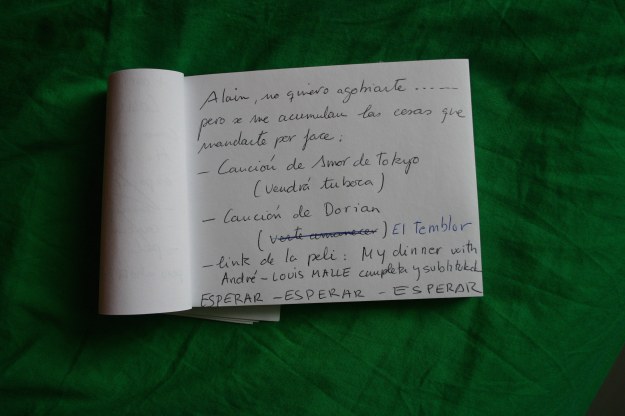 Alain, no quiero agobiarte ........
pero se me acumulan las cosas que
mandarte por face:
- Canción de Amor de Tokyo
(vendrá tu boca)
- Canción de Dorian
(verte amanecer) El Temblor
- link de la peli: My dinner with
André - LOUIS MALLE completa y subtitulad
ESPERAR - ESPERAR - ESPERAR